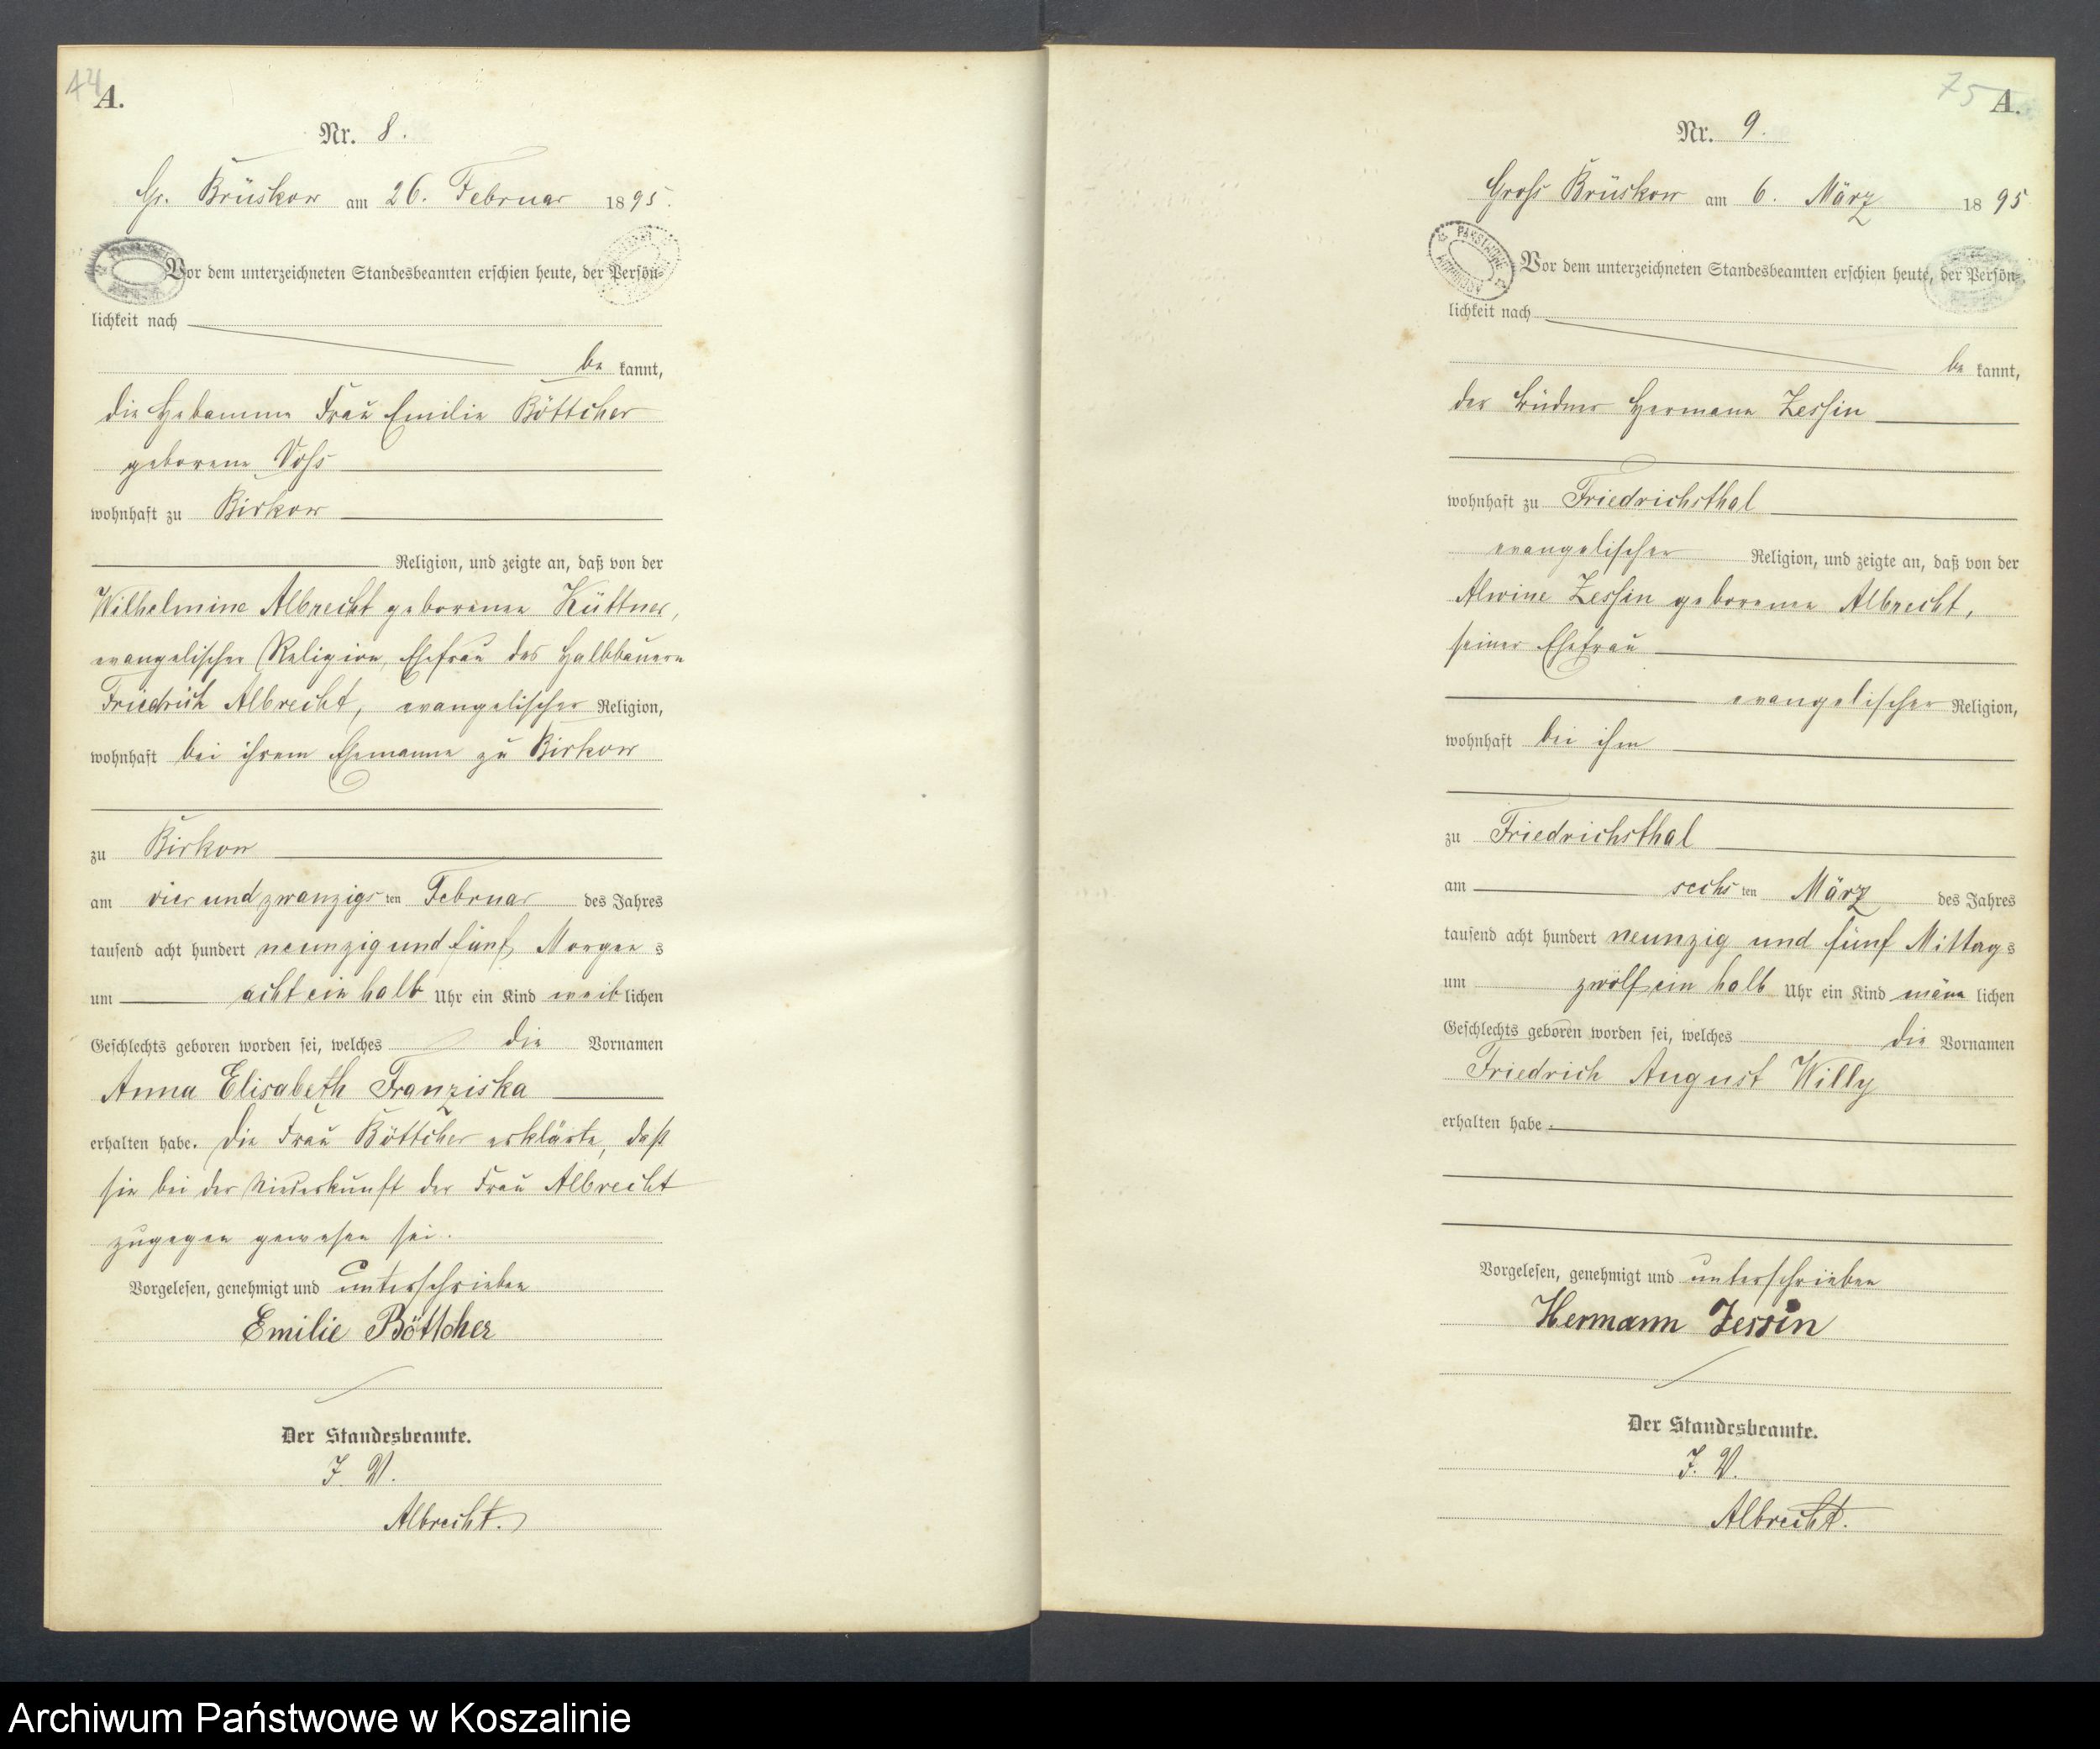 74
A.
Nr. 8.
Gr. Brüskow am 26. Februar 1895.
Vor dem unterzeichneten Standesbeamten erschien heute, der Persön-
lichkeit nach
be kannt,
die Hebamme Frau Emilie Böttcher
geborene Voss
wohnhaft zu Birkow
Religion, und zeigte an, daß von der
Wilhelmine Albrecht geborenen Küttner,
evangelischer Religion, Ehefrau des Halbbauern
Friedrich Albrecht, evangelischer Religion,
wohnhaft bei ihrem Ehemanne zu Birkow
zu Birkow
am vier und zwanzigs ten Februar des Jahres
tausend acht hundert neunzig und fünf, Morgen s
um acht ein halb Uhr ein Kind weib lichen
Geschlechts geboren worden sei, welches die Vornamen
Anna Elisabeth Franziska
erhalten habe. Die Frau Böttcher erklärte, daß
sie bei der Niederkunft der Frau Albrecht
zugegen gewesen sei.
Vorgelesen, genehmigt und unterschrieben
Emilie Böttcher
Der Standesbeamte.
J. V.
Albrecht.
75
A.
Nr. 9.
Gross Brüskow am 6. März 1895
Vor dem unterzeichneten Standesbeamten erschien heute, der Persön-
lichkeit nach
be kannt,
der Büdner Hermann Zessin
wohnhaft zu Friedrichsthal
evangelischer Religion, und zeigte an, daß von der
Alwine Zessin geborenen Albrecht,
seiner Ehefrau
evangelischer Religion,
wohnhaft bei ihm
zu Friedrichsthal
am sechs ten März des Jahres
tausend acht hundert neunzig und fünf Mittag s
um zwölf ein halb Uhr ein Kind männ lichen
Geschlechts geboren worden sei, welches die Vornamen
Friedrich August Willy
erhalten habe.
Vorgelesen, genehmigt und unterschrieben
Hermann Zessin
Der Standesbeamte.
J. V.
Albrecht.
Archiwum Państwowe w Koszalinie